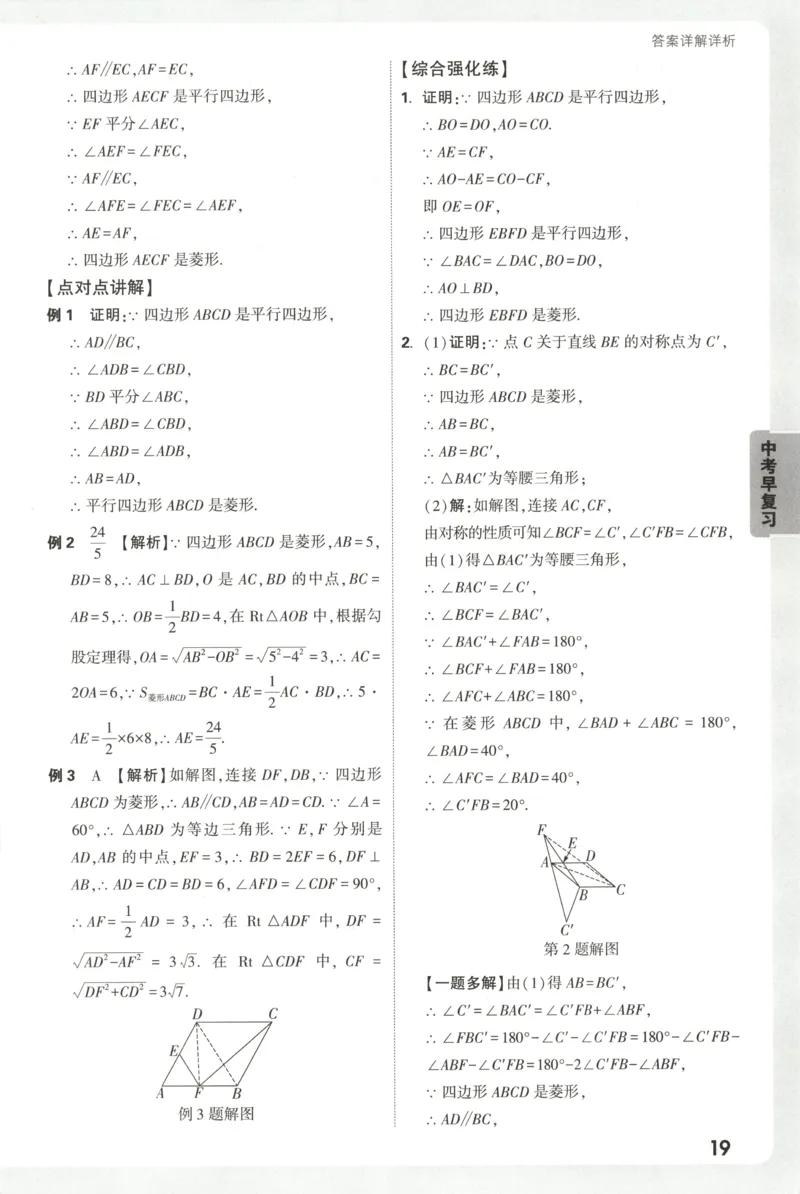 答案详解详析
∴ AF∥EC,AF=EC,
∴ 四边形 AECF 是平行四边形,
∵ EF 平分∠AEC,
∴ ∠AEF=∠FEC,
∵ AF∥EC,
∴ ∠AFE=∠FEC=∠AEF,
∴ AE=AF,
∴ 四边形 AECF 是菱形.
【点对点讲解】
例 1 证明:∵ 四边形 ABCD 是平行四边形,
∴ AD∥BC,
∴ ∠ADB=∠CBD,
∵ BD 平分∠ABC,
∴ ∠ABD=∠CBD,
∴ ∠ABD=∠ADB,
∴ AB=AD,
∴ 平行四边形 ABCD 是菱形.
例 2 24/5 【解析】∵ 四边形 ABCD 是菱形,AB=5,
BD=8,∴ AC⊥BD,O 是 AC,BD 的中点,BC=
AB=5,∴ OB=1/2BD=4,在 Rt△AOB 中,根据勾
股定理得,OA=√(AB²-OB²)=√(5²-4²)=3,∴ AC=
2OA=6,∵ S菱形ABCD=BC·AE=1/2AC·BD,∴ 5·
AE=1/2×6×8,∴ AE=24/5.
例 3 A 【解析】如解图,连接 DF,DB,∵ 四边形
ABCD 为菱形,∴ AB∥CD,AB=AD=CD.∵ ∠A=
60°,∴ △ABD 为等边三角形.∵ E,F 分别是
AD,AB 的中点,EF=3,∴ BD=2EF=6,DF⊥
AB,∴ AD=CD=BD=6,∠AFD=∠CDF=90°,
∴ AF=1/2AD=3,∴ 在 Rt△ADF 中,DF=
√(AD²-AF²)=3√3. 在 Rt△CDF 中,CF=
√(DF²+CD²)=3√7.
D
C
E
A
F
B
例 3 题解图
【综合强化练】
1. 证明:∵ 四边形 ABCD 是平行四边形,
∴ BO=DO,AO=CO.
∵ AE=CF,
∴ AO-AE=CO-CF,
即 OE=OF,
∴ 四边形 EBFD 是平行四边形,
∵ ∠BAC=∠DAC,BO=DO,
∴ AO⊥BD,
∴ 四边形 EBFD 是菱形.
2. (1)证明:∵ 点 C 关于直线 BE 的对称点为 C′,
∴ BC=BC′,
∵ 四边形 ABCD 是菱形,
∴ AB=BC,
∴ AB=BC′,
∴ △BAC′为等腰三角形;
(2)解:如解图,连接 AC,CF,
由对称的性质可知∠BCF=∠C′,∠C′FB=∠CFB,
由(1)得△BAC′为等腰三角形,
∴ ∠BAC′=∠C′,
∴ ∠BCF=∠BAC′,
∵ ∠BAC′+∠FAB=180°,
∴ ∠BCF+∠FAB=180°,
∴ ∠AFC+∠ABC=180°,
∵ 在菱形 ABCD 中,∠BAD+∠ABC=180°,
∠BAD=40°,
∴ ∠AFC=∠BAD=40°,
∴ ∠C′FB=20°.
F
E
A
D
B
C
C′
第 2 题解图
【一题多解】由(1)得 AB=BC′,
∴ ∠C′=∠BAC′=∠C′FB+∠ABF,
∴ ∠FBC′=180°-∠C′-∠C′FB=180°-∠C′FB-
∠ABF-∠C′FB=180°-2∠C′FB-∠ABF,
∵ 四边形 ABCD 是菱形,
∴ AD∥BC,
中考早复习
19